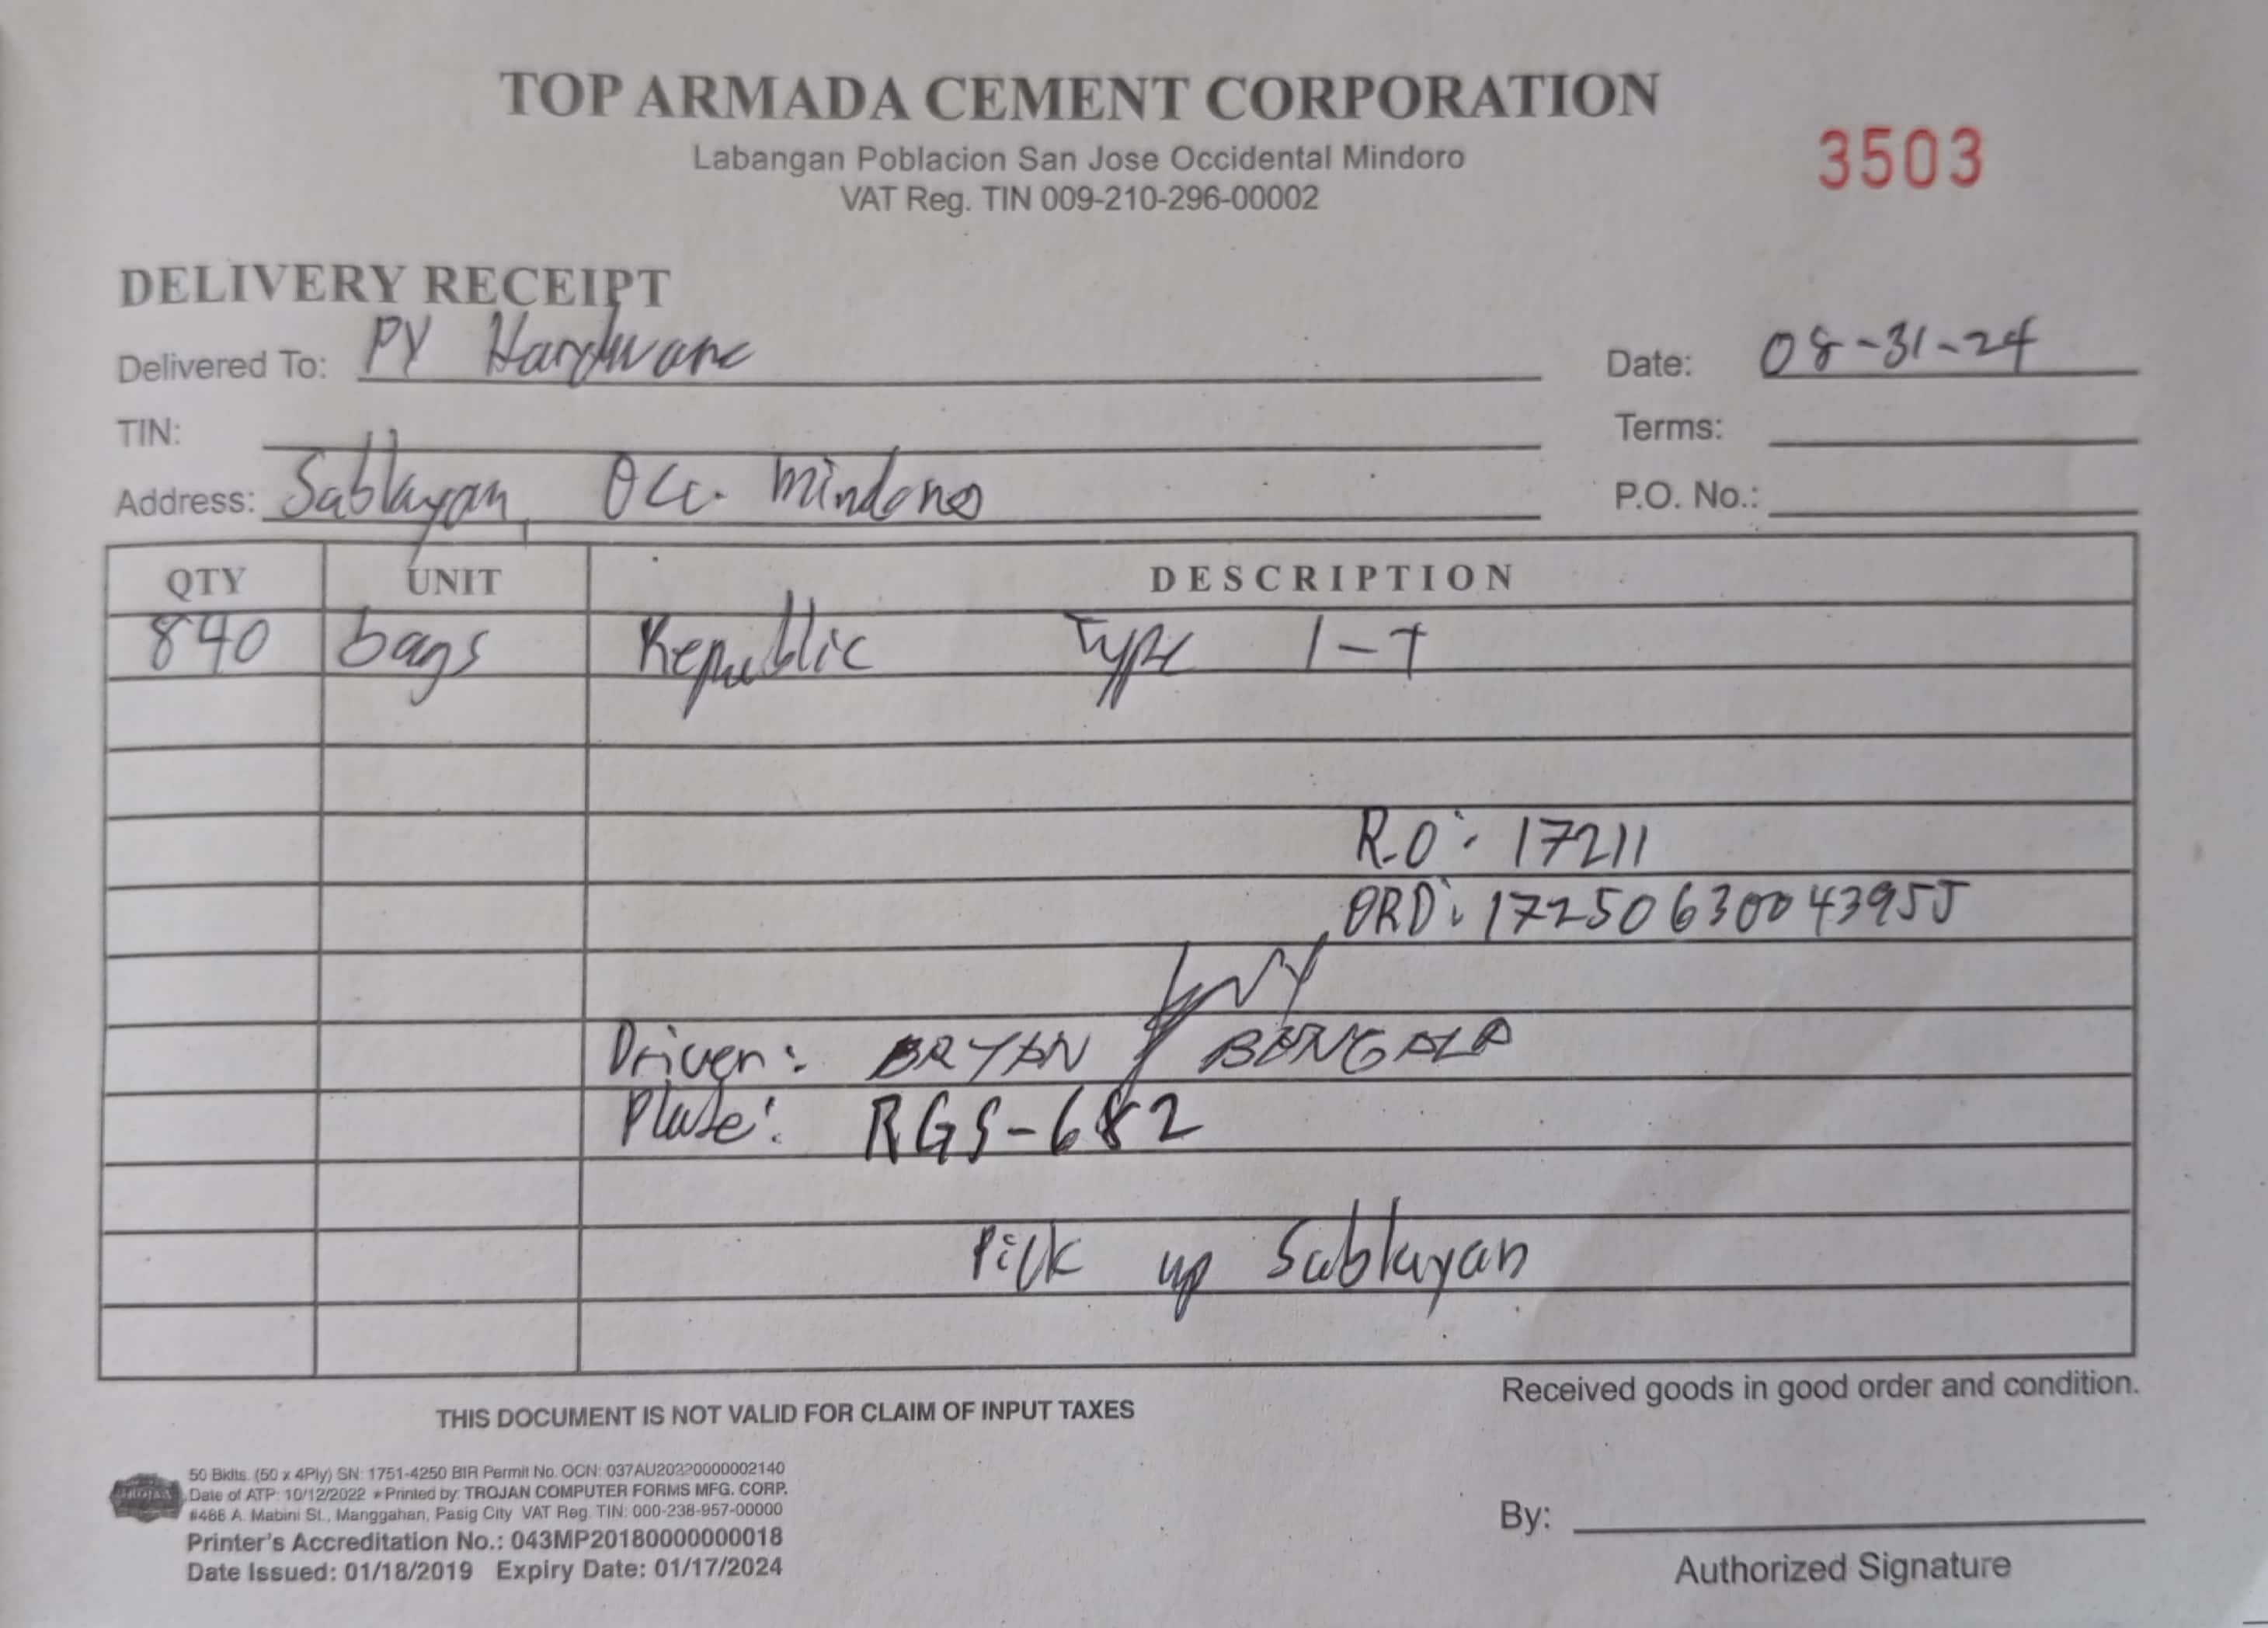 TOP ARMADA CEMENT CORPORATION
Labangan Poblacion San Jose Occidental Mindoro
VAT Reg. TIN 009-210-296-00002
3503
DELIVERY RECEIPT
Delivered To: PY Hardware
Date: 08-31-24
TIN:
Terms:
Address: Sablayan, Occ. Mindoro
P.O. No.:
QTY UNIT DESCRIPTION
840 bags Republic Type 1-T
R.O: 17211
ORD: 1725063004395J
Driver: BRYAN BENGALA
Plate: RGS-682
Pick up Sablayan
THIS DOCUMENT IS NOT VALID FOR CLAIM OF INPUT TAXES
Received goods in good order and condition.
50 Bklts. (50 x 4Ply) SN: 1751-4250 BIR Permit No. OCN: 037AU20220000002140
Date of ATP: 10/12/2022 * Printed by: TROJAN COMPUTER FORMS MFG. CORP.
#486 A. Mabini St., Manggahan, Pasig City VAT Reg. TIN: 000-238-957-00000
Printer's Accreditation No.: 043MP20180000000018
Date Issued: 01/18/2019 Expiry Date: 01/17/2024
TROJAN
By:
Authorized Signature